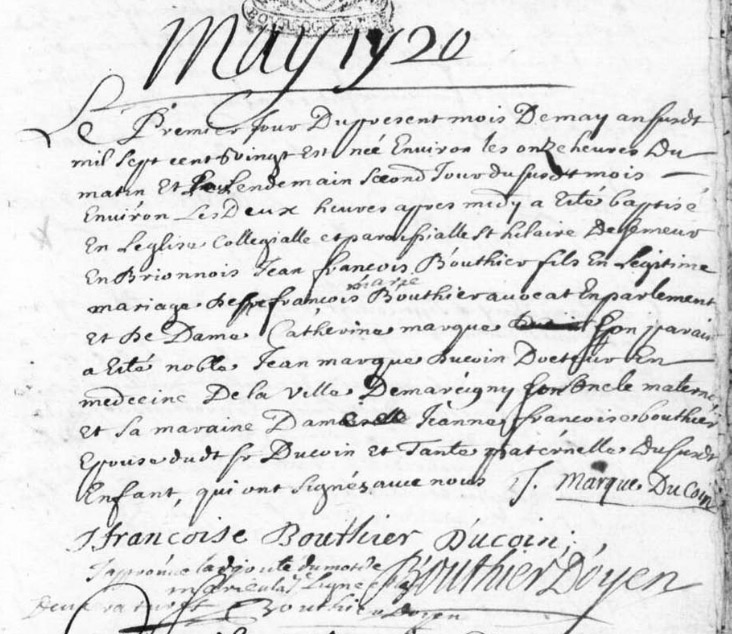 May 1720
Le Premier Jour Du present mois De may an susdt
mil sept cent & vingt Est née Environ les onze heures Du
matin Et Le Lendemain second Jour du susdt mois
Environ Les Deux heures appres midy a Eté baptisé
En Leglise Collegialle et paroissialle St hilaire De semeur
En Brionnois Jean françois Bouthier fils En legitime
marie
mariage de sr françois Bouthier avocat En parlement
Et De Dame Catherine marque son parain
a Eté noble Jean marque Ducoin Docteur En
medecine De la ville De marcigny son oncle maternel
Et sa maraine Dame Jeanne françoise bouthier
Epouse dudt sr Ducoin Et Tante paternelle Dususdt
Enfant, qui ont signés avec nous J. Marque Du Coin
J francoise Bouthier Ducoin
Japrouve la djouté du mot de Bouthier Doyen
marie ligne
Bouthier doyen